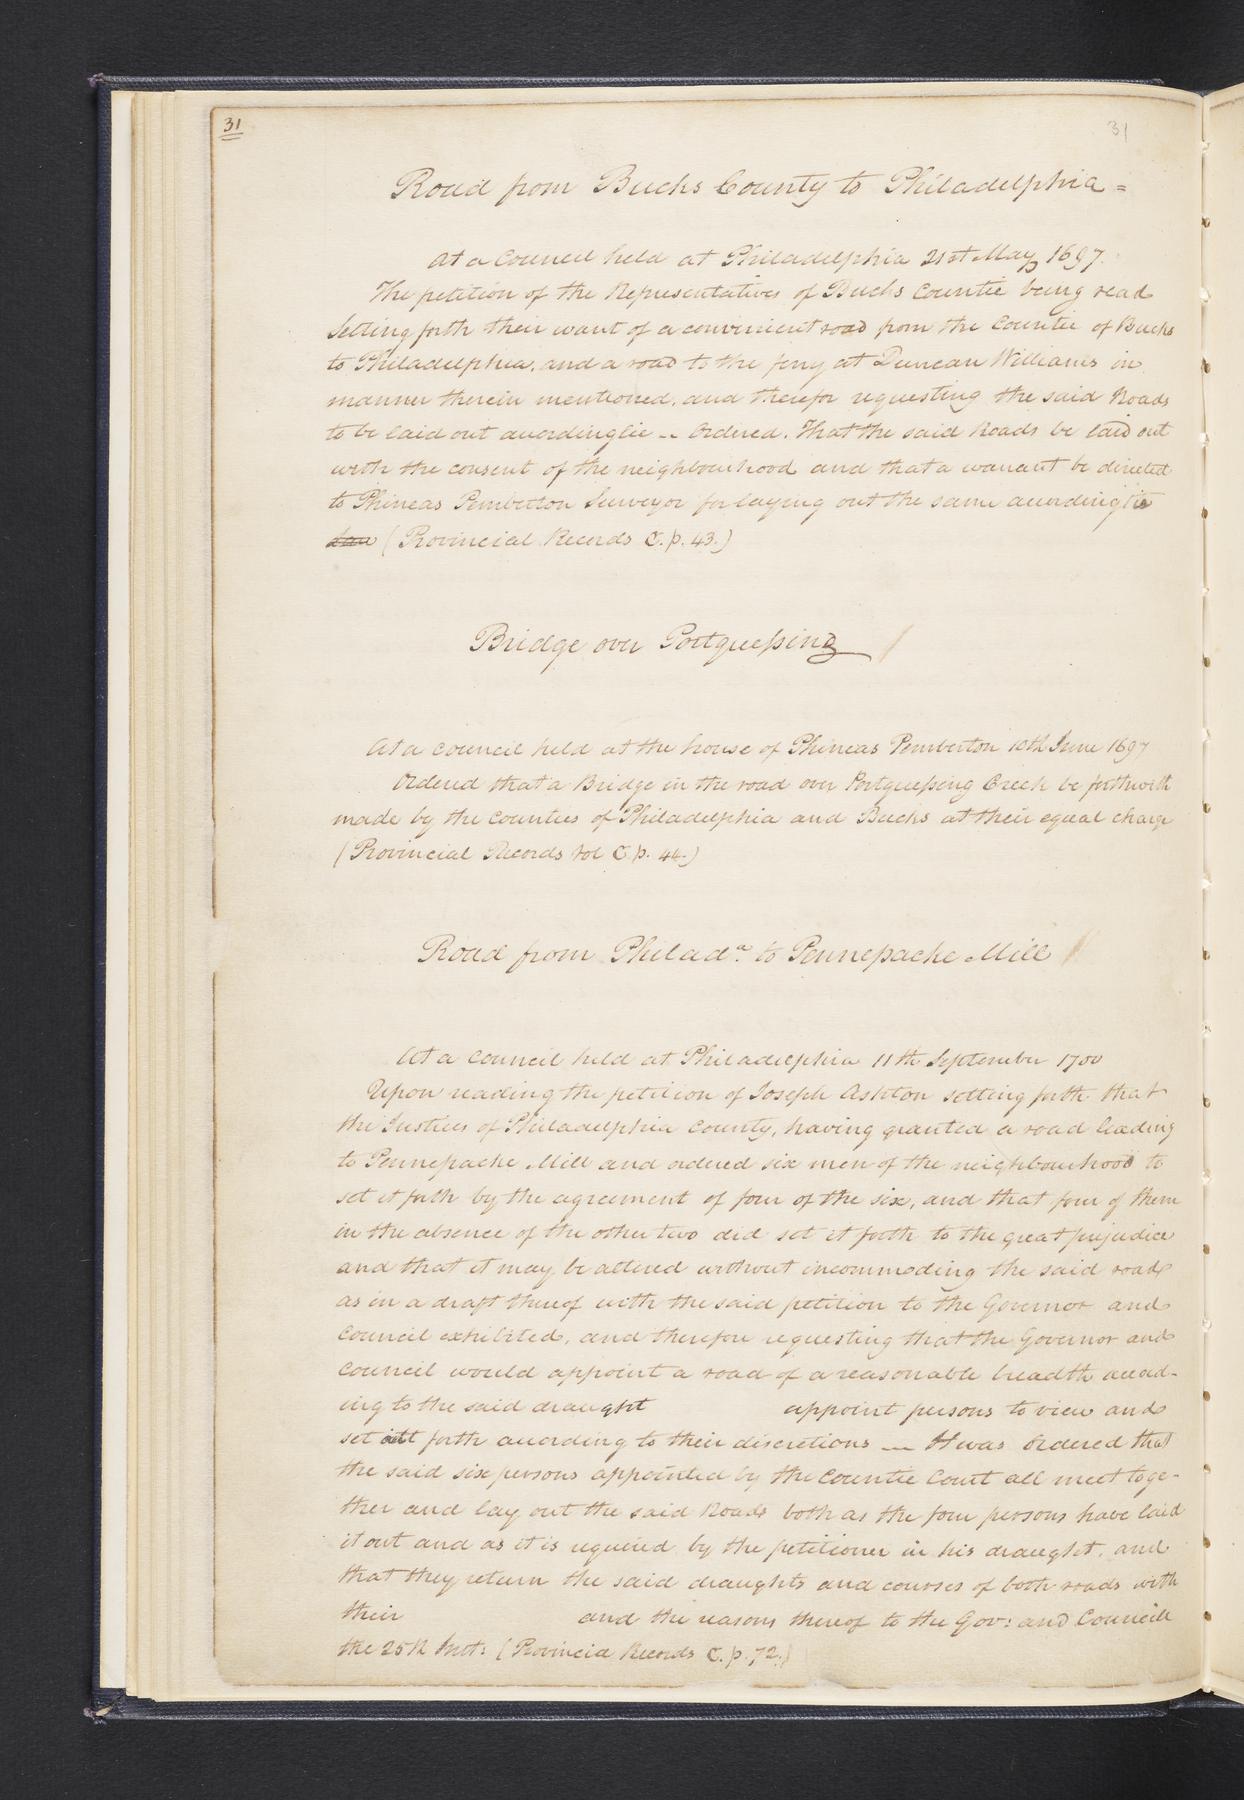 31
31
Road from Bucks County to Philadelphia =
At a Council held at Philadelphia 21st May 1697.
The petition of the Representatives of Bucks Countie being read
Setting forth their want of a convenient road from the Countie of Bucks
to Philadelphia, and a road to the ferry at Duncan Williams in
manner therein mentioned, and therefor requesting the said Roads
to be laid out accordinglie -- Ordered. That the said Roads be laid out
with the consent of the neighbourhood and that a warrant be directed
to Phineas Pemberton Surveyor for laying out the same accordinglie
(Provincial Records C. p. 43.)
Bridge over Poetquessing
At a council held at the house of Phineas Pemberton 10th June 1697
Ordered that a Bridge in the road over Poetquessing Creek be forthwith
made by the counties of Philadelphia and Bucks at their equal charge
(Provincial Records Vol C. p. 44.)
Road from Philada. to Pennepacke Mill
At a Council held at Philadelphia 11th September 1700
Upon reading the petition of Joseph Ashton setting forth that
the Justices of Philadelphia County, having granted a road leading
to Pennepacke Mill and ordered six men of the neighbourhood to
set it forth by the agreement of four of the six, and that four of them
in the absence of the other two did set it forth to the great prejudice
and that it may be altered without incommoding the said road
as in a draft thereof with the said petition to the Governor and
Council exhibited, and therefore requesting that the Governor and
Council would appoint a road of a reasonable breadth accord-
ing to the said draught appoint persons to view and
set itt forth according to their discretions -- It was Ordered that
the said six persons appointed by the Countie Court all meet toge-
ther and lay out the said Roads both as the four persons have laid
it out and as it is required by the petitioner in his draught, and
that they return the said draughts and courses of both roads with
their and the reasons thereof to the Gov: and Councill
the 25th Inst: (Provincia Records C. p. 72.)